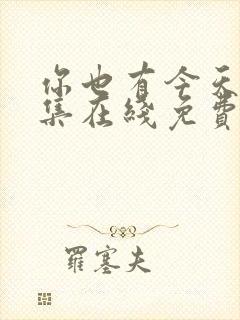 你也有今天
集在线免费
羅塞夫